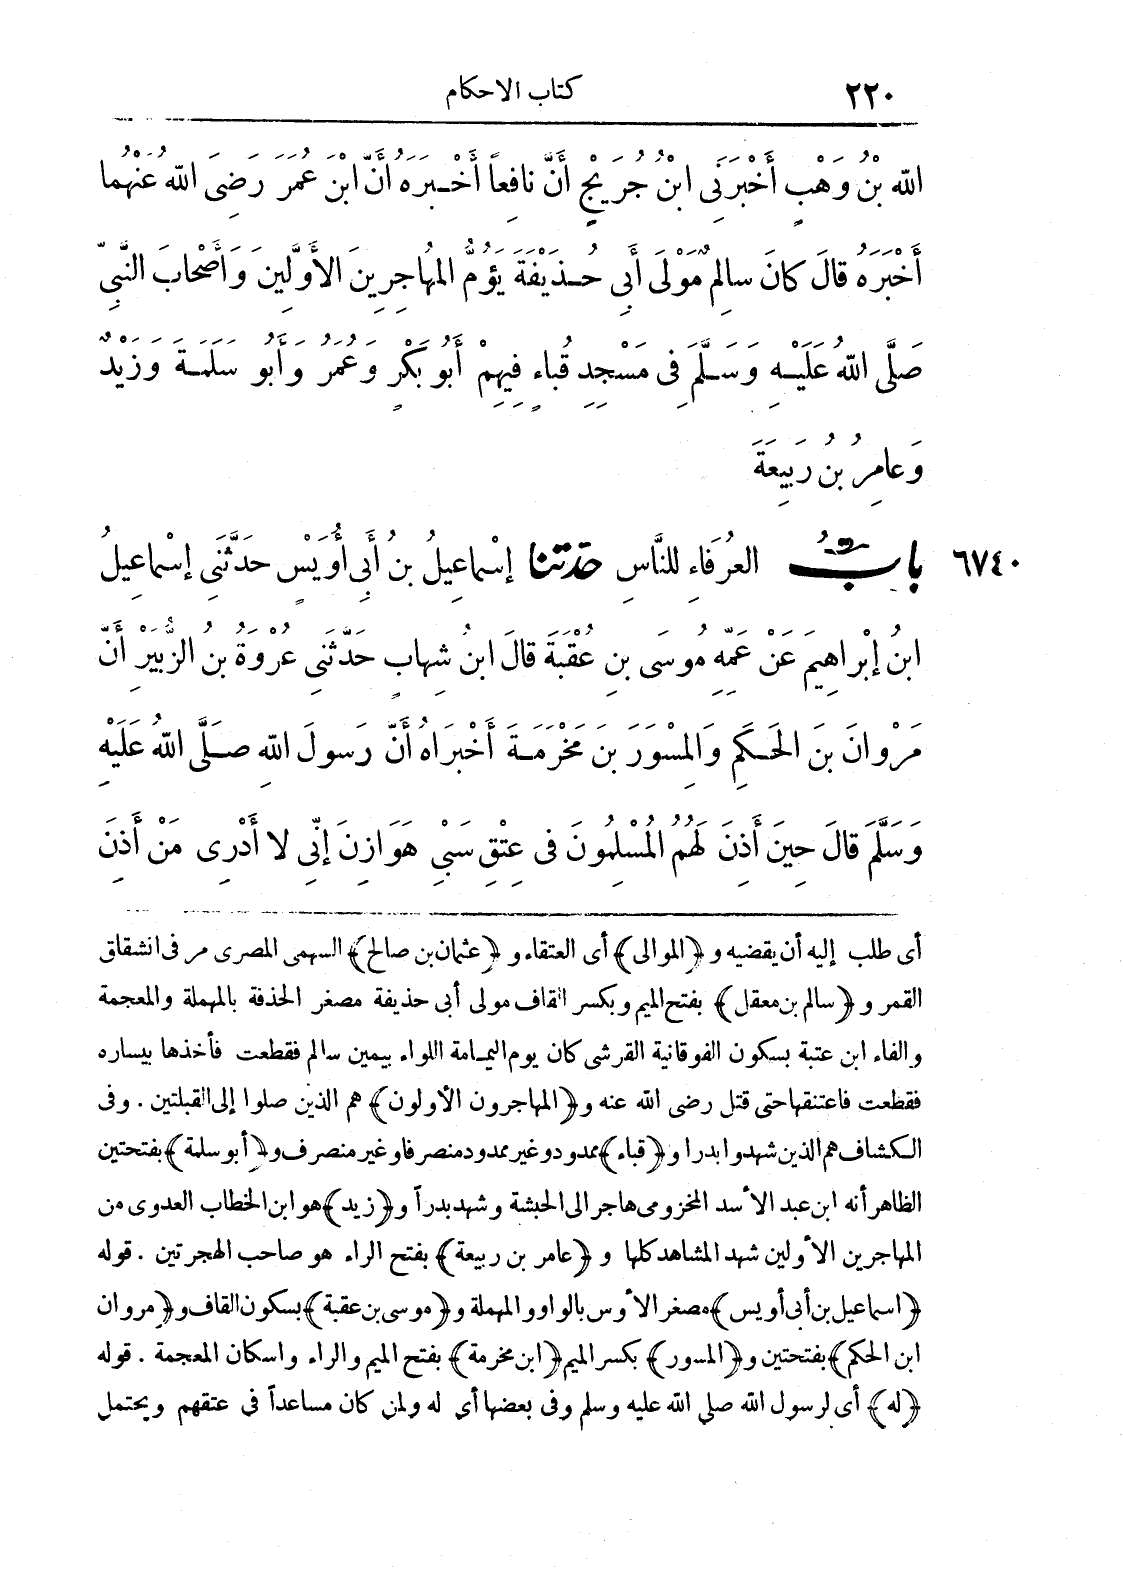 ٢٢٠ كتاب الاحكام
اللهِ بْنُ وَهْبٍ أَخْبَرَنِى ابْنُ جُرَيْجٍ أَنَّ نافِعاً أَخْبَرَهُ أَنَّ ابْنَ عُمَرَ رَضِىَ اللهُ عَنْهُما
أَخْبَرَهُ قالَ كانَ سالِمٌ مَوْلَى أَبِى حُذَيْفَةَ يَؤُمُّ المُهاجِرِينَ الأَوَّلِينَ وَأَصْحابَ النَّبِىِّ
صَلَّى اللهُ عَلَيْهِ وَسَلَّمَ فِى مَسْجِدِ قُباءٍ فِيهِمْ أَبُو بَكْرٍ وَعُمَرُ وَأَبُو سَلَمَةَ وَزَيْدٌ
وَعامِرُ بْنُ رَبِيعَةَ
٦٧٤٠ بابُ العُرَفاءِ لِلنَّاسِ حَدَّثَنا إِسْماعِيلُ بنُ أَبِى أُوَيْسٍ حَدَّثَنِى إِسْماعِيلُ
ابنُ إِبْراهِيمَ عَنْ عَمِّهِ مُوسَى بنِ عُقْبَةَ قالَ ابنُ شِهابٍ حَدَّثَنِى عُرْوَةُ بنُ الزُّبَيْرِ أَنَّ
مَرْوانَ بنَ الحَكَمِ وَالمِسْوَرَ بنَ مَخْرَمَةَ أَخْبَراهُ أَنَّ رَسولَ اللهِ صَلَّى اللهُ عَلَيْهِ
وَسَلَّمَ قالَ حِينَ أَذِنَ لَهُمُ المُسْلِمُونَ فى عِتْقِ سَبْىِ هَوَازِنَ إِنِّى لا أَدْرِى مَنْ أَذِنَ
أى طلب إليه أن يقضيه و ﴿الموالى﴾ أى العتقاء و ﴿عثمان بن صالح﴾ السهمى المصرى مر فى انشقاق
القمر و ﴿سالم بن معقل﴾ بفتح الميم وبكسر القاف مولى أبى حذيفة مصغر الحذفة بالمهملة والمعجمة
والفاء ابن عتبة بسكون الفوقانية القرشى كان يوم اليمامة اللواء بيمين سالم فقطعت فأخذها بيساره
فقطعت فاعتنقها حتى قتل رضى الله عنه و ﴿المهاجرون الأولون﴾ هم الذين صلوا إلى القبلتين . وفى
الكشاف هم الذين شهدوا بدرا و ﴿قباء﴾ ممدود وغير ممدود منصرف وغير منصرف و ﴿أبو سلمة﴾ بفتحتين
الظاهر أنه ابن عبد الأسد المخزومى هاجر الى الحبشة وشهد بدراً و ﴿زيد﴾ هو ابن الخطاب العدوى من
المهاجرين الأولين شهد المشاهد كلها و ﴿عامر بن ربيعة﴾ بفتح الراء هو صاحب الهجرتين . قوله
﴿اسماعيل بن أبى أويس﴾ مصغر الأوس بالواو والمهملة و ﴿موسى بن عقبة﴾ بسكون القاف و ﴿مروان
ابن الحكم﴾ بفتحتين و ﴿المسور﴾ بكسر الميم ﴿ابن مخرمة﴾ بفتح الميم والراء واسكان المعجمة . قوله
﴿له﴾ أى لرسول الله صلى الله عليه وسلم وفى بعضها أى له ولمن كان مساعداً فى عتقهم ويحتمل